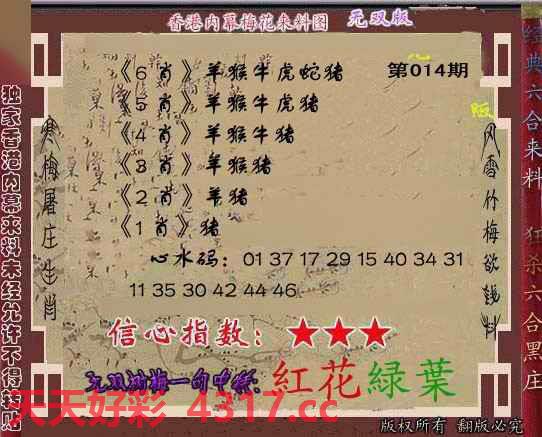 香港内幕梅花来料图 无双版
《6肖》羊猴牛虎蛇猪 第014期
《5肖》羊猴牛虎猪
《4肖》羊猴牛猪
《3肖》羊猴猪
《2肖》羊猪
《1肖》猪
心水码：01 37 17 29 15 40 34 31
11 35 30 42 44 46
信心指数：★★★
红花緑葉
天天好彩 4317.cc
版权所有 翻版必究
独家香港内幕来料未经允许不得转贴
寒梅屠庄生肖
风雪竹梅欲钱料
经典六合来料 狂杀六合黑庄